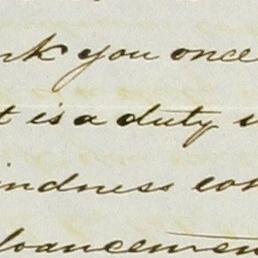 nk you once
t is a duty
indness
vancemen